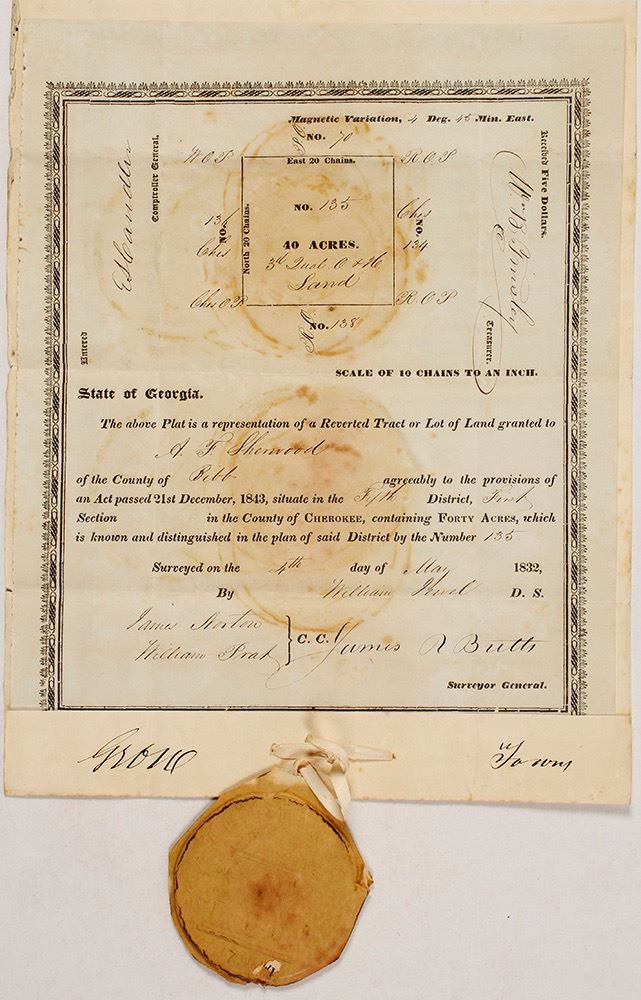 Magnetic Variation, 4 Deg. 45 Min. East.
NO. 70
East 20 Chains.
R O P
NO. 135
40 ACRES.
3d Qual O & H
Land
North 20 Chains.
136
NO.
Ches
Ches
NO.
134
Ches O P
R O P
NO. 138
Comptroller General.
Entered
Received Five Dollars.
Wm B Tinsley
Treasurer.
SCALE OF 10 CHAINS TO AN INCH.
State of Georgia.
The above Plat is a representation of a Reverted Tract or Lot of Land granted to
A. F. Sherwood
of the County of Bibb agreeably to the provisions of
an Act passed 21st December, 1843, situate in the Fifth District, First
Section in the County of CHEROKEE, containing FORTY ACRES, which
is known and distinguished in the plan of said District by the Number 135
Surveyed on the 4th day of May 1832,
By William Jewel D. S.
James Norton
William Prat
C. C.
James R Butts
Surveyor General.
Geo W Towns